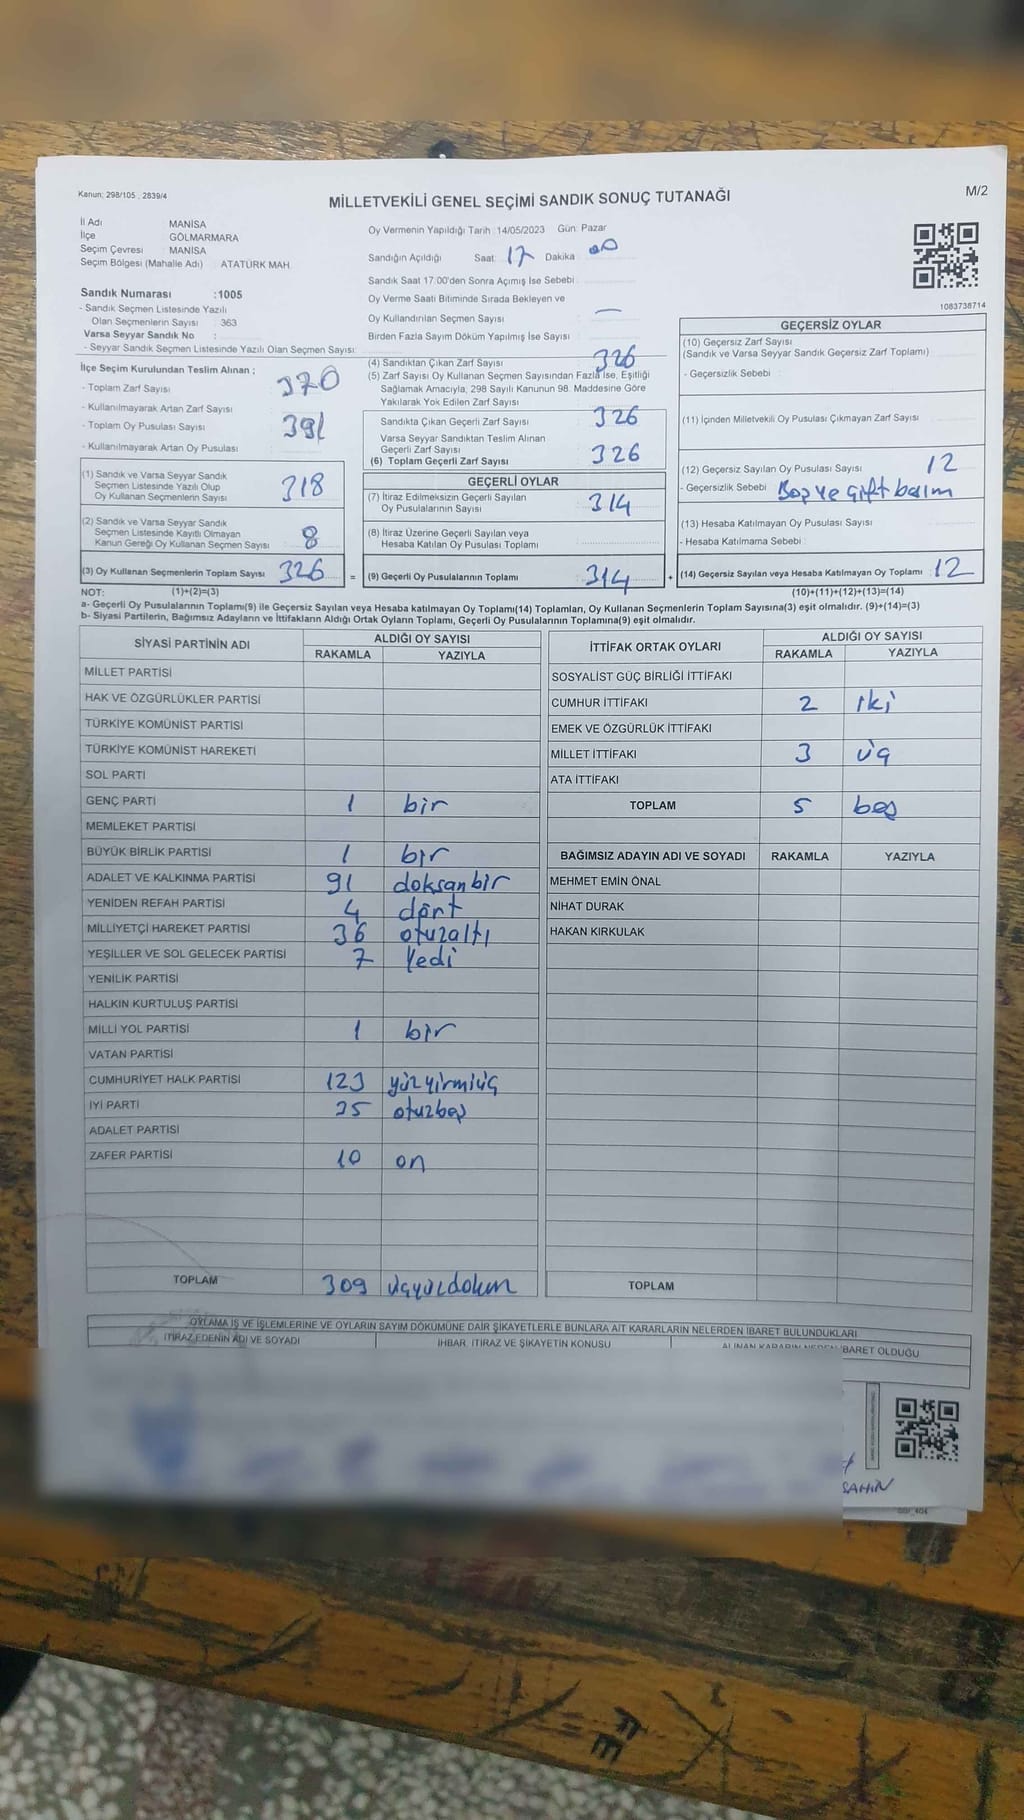 Kanun: 298/105 , 2839/4
MİLLETVEKİLİ GENEL SEÇİMİ SANDIK SONUÇ TUTANAĞI
M/2
İl Adı MANİSA
İlçe GÖLMARMARA
Seçim Çevresi MANİSA
Seçim Bölgesi (Mahalle Adı) : ATATÜRK MAH.
Sandık Numarası :1005
- Sandık Seçmen Listesinde Yazılı
Olan Seçmenlerin Sayısı : 363
Varsa Seyyar Sandık No :
- Seyyar Sandık Seçmen Listesinde Yazılı Olan Seçmen Sayısı:
Oy Vermenin Yapıldığı Tarih :14/05/2023 Gün: Pazar
Sandığın Açıldığı Saat: 17 Dakika: 00
Sandık Saat 17:00'den Sonra Açımış İse Sebebi :
Oy Verme Saati Bitiminde Sırada Bekleyen ve
Oy Kullandırılan Seçmen Sayısı : —
Birden Fazla Sayım Döküm Yapılmış İse Sayısı :
1083738714
İlçe Seçim Kurulundan Teslim Alınan ;
- Toplam Zarf Sayısı : 370
- Kullanılmayarak Artan Zarf Sayısı :
- Toplam Oy Pusulası Sayısı : 391
- Kullanılmayarak Artan Oy Pusulası :
(1) Sandık ve Varsa Seyyar Sandık
Seçmen Listesinde Yazılı Olup
Oy Kullanan Seçmenlerin Sayısı : 318
(2) Sandık ve Varsa Seyyar Sandık
Seçmen Listesinde Kayıtlı Olmayan
Kanun Gereği Oy Kullanan Seçmen Sayısı : 8
(3) Oy Kullanan Seçmenlerin Toplam Sayısı : 326
(4) Sandıktan Çıkan Zarf Sayısı : 326
(5) Zarf Sayısı Oy Kullanan Seçmen Sayısından Fazla İse, Eşitliği
Sağlamak Amacıyla, 298 Sayılı Kanunun 98. Maddesine Göre
Yakılarak Yok Edilen Zarf Sayısı :
Sandıkta Çıkan Geçerli Zarf Sayısı : 326
Varsa Seyyar Sandıktan Teslim Alınan
Geçerli Zarf Sayısı :
(6) Toplam Geçerli Zarf Sayısı : 326
GEÇERLİ OYLAR
(7) İtiraz Edilmeksizin Geçerli Sayılan
Oy Pusulalarının Sayısı : 314
(8) İtiraz Üzerine Geçerli Sayılan veya
Hesaba Katılan Oy Pusulası Toplamı :
= (9) Geçerli Oy Pusulalarının Toplamı : 314 +
GEÇERSİZ OYLAR
(10) Geçersiz Zarf Sayısı
(Sandık ve Varsa Seyyar Sandık Geçersiz Zarf Toplamı) :
- Geçersizlik Sebebi :
(11) İçinden Milletvekili Oy Pusulası Çıkmayan Zarf Sayısı :
(12) Geçersiz Sayılan Oy Pusulası Sayısı : 12
- Geçersizlik Sebebi : Boş ve çift basım
(13) Hesaba Katılmayan Oy Pusulası Sayısı :
- Hesaba Katılmama Sebebi :
(14) Geçersiz Sayılan veya Hesaba Katılmayan Oy Toplamı : 12
NOT: (1)+(2)=(3) (10)+(11)+(12)+(13)=(14)
a- Geçerli Oy Pusulalarının Toplamı(9) ile Geçersiz Sayılan veya Hesaba katılmayan Oy Toplamı(14) Toplamları, Oy Kullanan Seçmenlerin Toplam Sayısına(3) eşit olmalıdır. (9)+(14)=(3)
b- Siyasi Partilerin, Bağımsız Adayların ve İttifakların Aldığı Ortak Oyların Toplamı, Geçerli Oy Pusulalarının Toplamına(9) eşit olmalıdır.
SİYASİ PARTİNİN ADI ALDIĞI OY SAYISI
RAKAMLA YAZIYLA
MİLLET PARTİSİ
HAK VE ÖZGÜRLÜKLER PARTİSİ
TÜRKİYE KOMÜNİST PARTİSİ
TÜRKİYE KOMÜNİST HAREKETİ
SOL PARTİ
GENÇ PARTİ 1 bir
MEMLEKET PARTİSİ
BÜYÜK BİRLİK PARTİSİ 1 bir
ADALET VE KALKINMA PARTİSİ 91 doksanbir
YENİDEN REFAH PARTİSİ 4 dört
MİLLİYETÇİ HAREKET PARTİSİ 36 otuzaltı
YEŞİLLER VE SOL GELECEK PARTİSİ 7 Yedi
YENİLİK PARTİSİ
HALKIN KURTULUŞ PARTİSİ
MİLLİ YOL PARTİSİ 1 bir
VATAN PARTİSİ
CUMHURİYET HALK PARTİSİ 123 yüzyirmiüç
İYİ PARTİ 35 otuzbeş
ADALET PARTİSİ
ZAFER PARTİSİ 10 on
TOPLAM 309
İTTİFAK ORTAK OYLARI ALDIĞI OY SAYISI
RAKAMLA YAZIYLA
SOSYALİST GÜÇ BİRLİĞİ İTTİFAKI
CUMHUR İTTİFAKI 2 iki
EMEK VE ÖZGÜRLÜK İTTİFAKI
MİLLET İTTİFAKI 3 üç
ATA İTTİFAKI
TOPLAM 5 beş
BAĞIMSIZ ADAYIN ADI VE SOYADI RAKAMLA YAZIYLA
MEHMET EMİN ÖNAL
NİHAT DURAK
HAKAN KIRKULAK
TOPLAM
OYLAMA İŞ VE İŞLEMLERİNE VE OYLARIN SAYIM DÖKÜMÜNE DAİR ŞİKAYETLERLE BUNLARA AİT KARARLARIN NELERDEN İBARET BULUNDUKLARI
İTİRAZ EDENİN ADI VE SOYADI İHBAR, İTİRAZ VE ŞİKAYETİN KONUSU ALINAN KARARIN NEDEN İBARET OLDUĞU
ŞAHİN